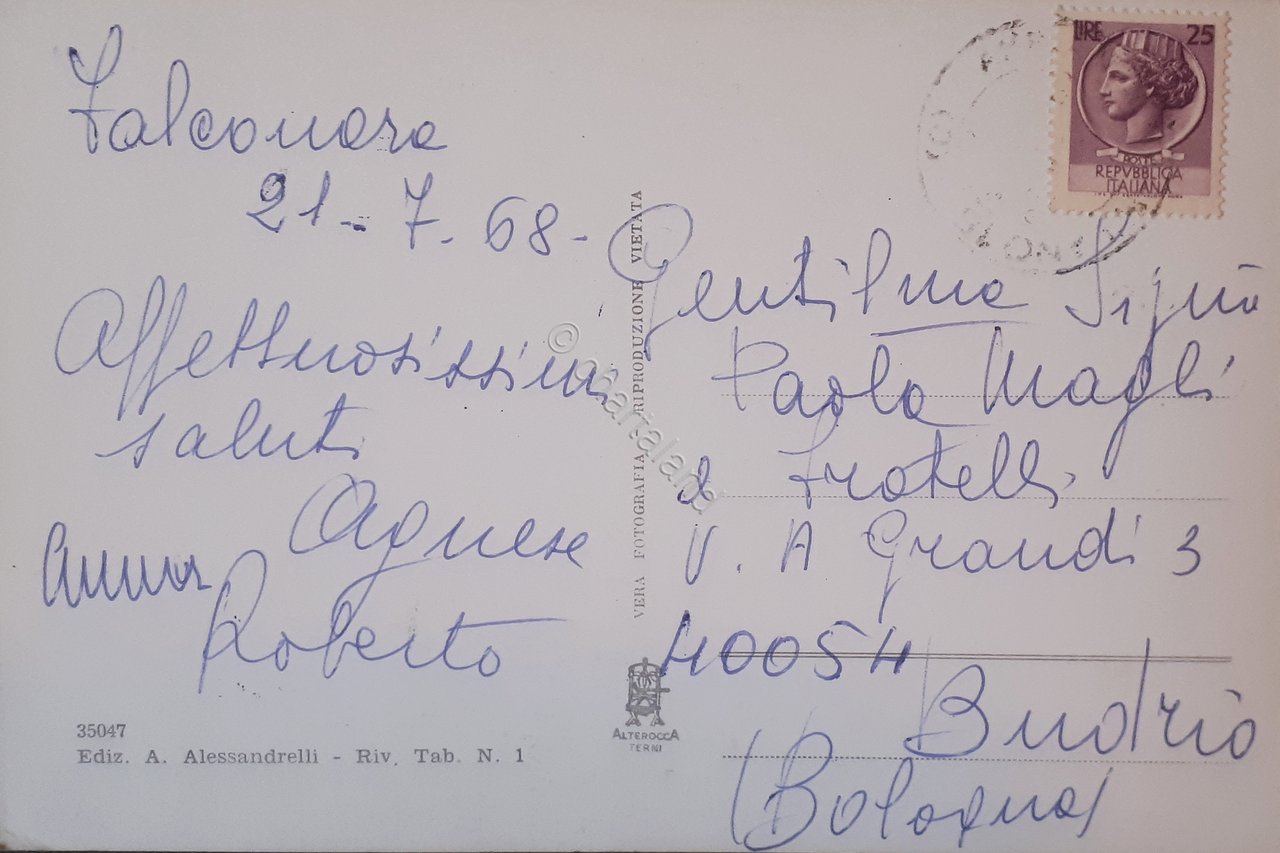 Falconara
21-7.68-
Affettuosissimi
saluti
Agnese
Anna
Roberto
35047
Ediz. A. Alessandrelli - Riv. Tab. N. 1
VERA FOTOGRAFIA RIPRODUZIONE VIETATA
ALTEROCCA
TERNI
LIRE 25
POSTE
REPVBBLICA
ITALIANA
Gentilma Sig.na
Paola Magli
e fratelli
V. A Grandi 3
40054
Budrio
(Bologna)